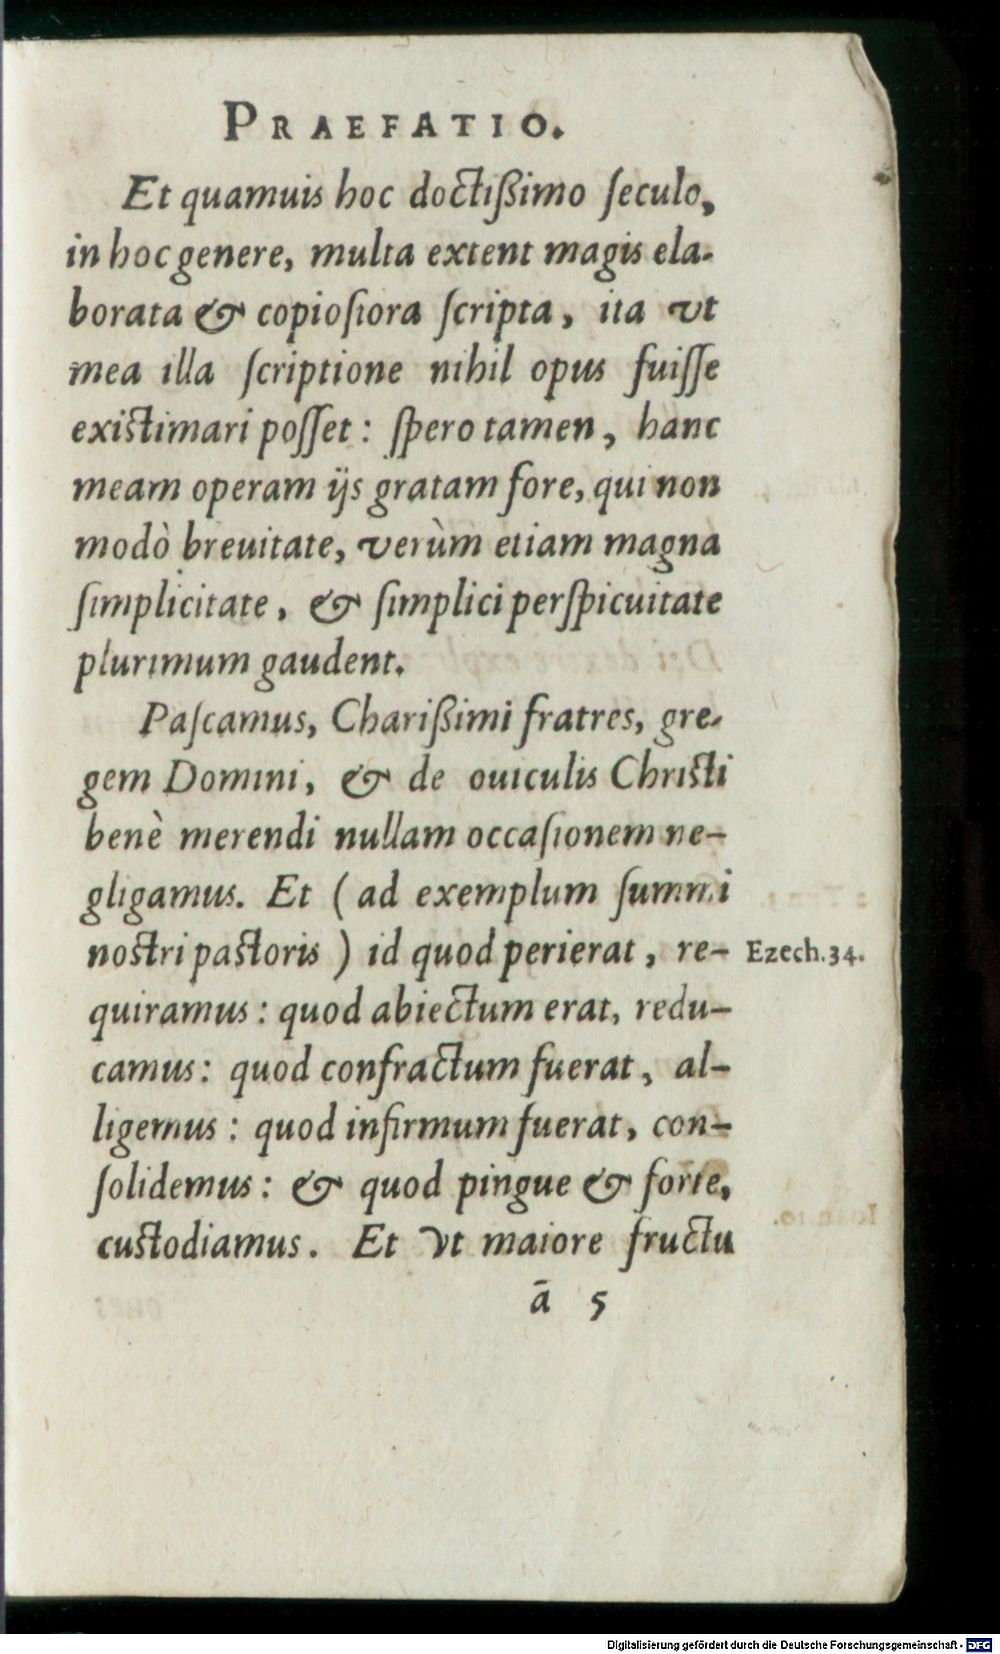 PRAEFATIO.
Et quamuis hoc doctißimo ſeculo,
in hoc genere, multa extent magis ela-
borata & copioſiora ſcripta, ita vt
mea illa ſcriptione nihil opus fuiſſe
existimari poſſet: ſpero tamen, hanc
meam operam ijs gratam fore, qui non
modò breuitate, verùm etiam magna
ſimplicitate, & ſimplici perſpicuitate
plurimum gaudent.
Paſcamus, Charißimi fratres, gre-
gem Domini, & de ouiculis Christi
benè merendi nullam occaſionem ne-
gligamus. Et ( ad exemplum ſummi
nostri pastoris ) id quod perierat, re-
Ezech.34.
quiramus: quod abiectum erat, redu-
camus: quod confractum fuerat, al-
ligemus: quod infirmum fuerat, con-
ſolidemus: & quod pingue & forte,
custodiamus. Et vt maiore fructu
ā 5
Digitalisierung gefördert durch die Deutsche Forschungsgemeinschaft - DFG